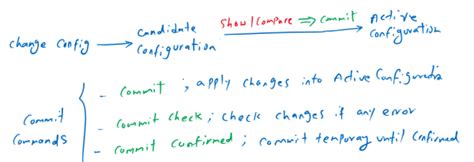 change config → Candidate Configuration Show|Compare ⇒ Commit → Active Configuration
Commit Commands
- Commit ; apply changes into Active Configuratio
- Commit check ; check changes if any error
- Commit Confirmed ; Commit temporay until Confirmed